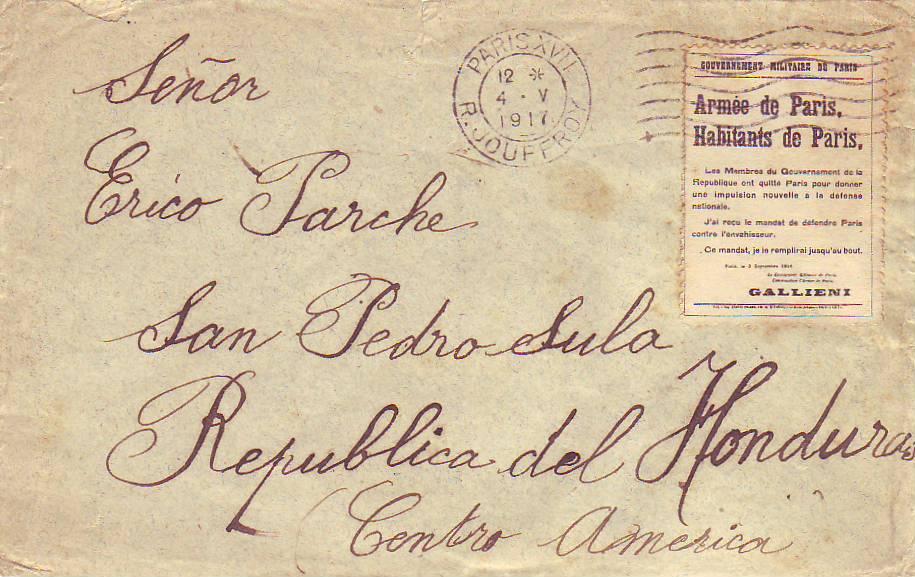 Señor
Erico Parche
San Pedro Sula
Republica del Honduras
(Centro America
PARIS XVII
12 *
4 - V
1917
R. JOUFFROY
GOUVERNEMENT MILITAIRE DE PARIS
Armée de Paris,
Habitants de Paris,
Les Membres du Gouvernement de la
République ont quitté Paris pour donner
une impulsion nouvelle à la défense
nationale.
J'ai reçu le mandat de défendre Paris
contre l'envahisseur.
Ce mandat, je le remplirai jusqu'au bout.
Paris, le 3 Septembre 1914
Le Gouverneur Militaire de Paris,
Commandant l'Armée de Paris,
GALLIENI